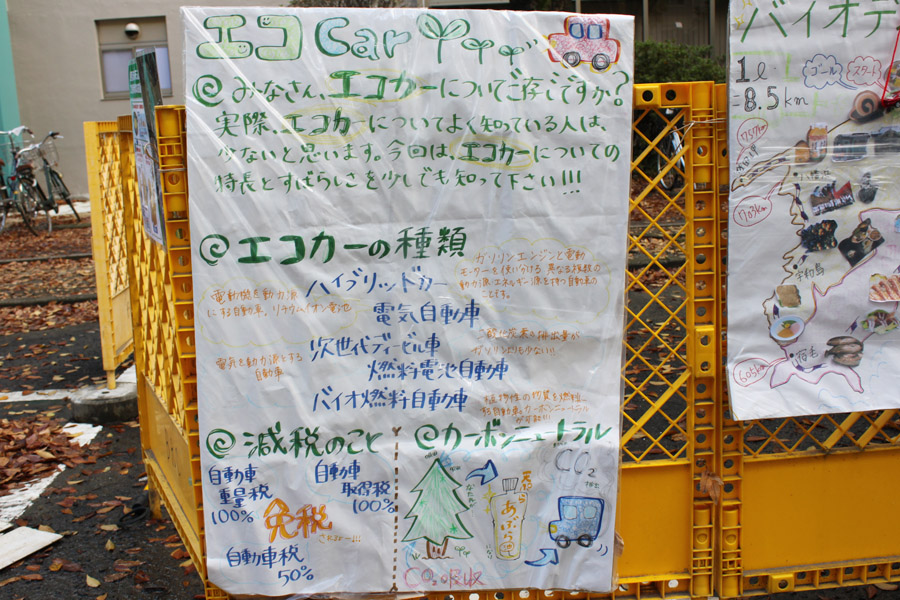 エコ Car
みなさん、エコカーについてご存じですか?
実際、エコカーについてよく知っている人は、
少ないと思います。今回は、エコカーについての
特長とすばらしさを少しでも知って下さい!!!
エコカーの種類
ハイブリッドカー
ガソリンエンジンと電動
モーターを使い分ける 異なる複数の
動力源
エネルギー源を持つ自動車の
ことです。
電動機を動力源
にする自動車、リチウムイオン電池
電気自動車
次世代ディーゼル車
二酸化炭素の排出量が
ガソリンよりも少ない!!
電気を動力源とする
自動車
燃料電池自動車
バイオ燃料自動車
植物性の物質を燃料に
する自動車。カーボンニュートラル
が可能!!!
減税のこと
自動車
重量税
100%
自動車
取得税
100%
免税
自動車税
50%
カーボンニュートラル
天ぷら
あぶら
CO₂
排出
CO₂吸収
バイオデ
1ℓ
=8.5km
ゴール
スタート
宇和島
宿毛
1703km
605km